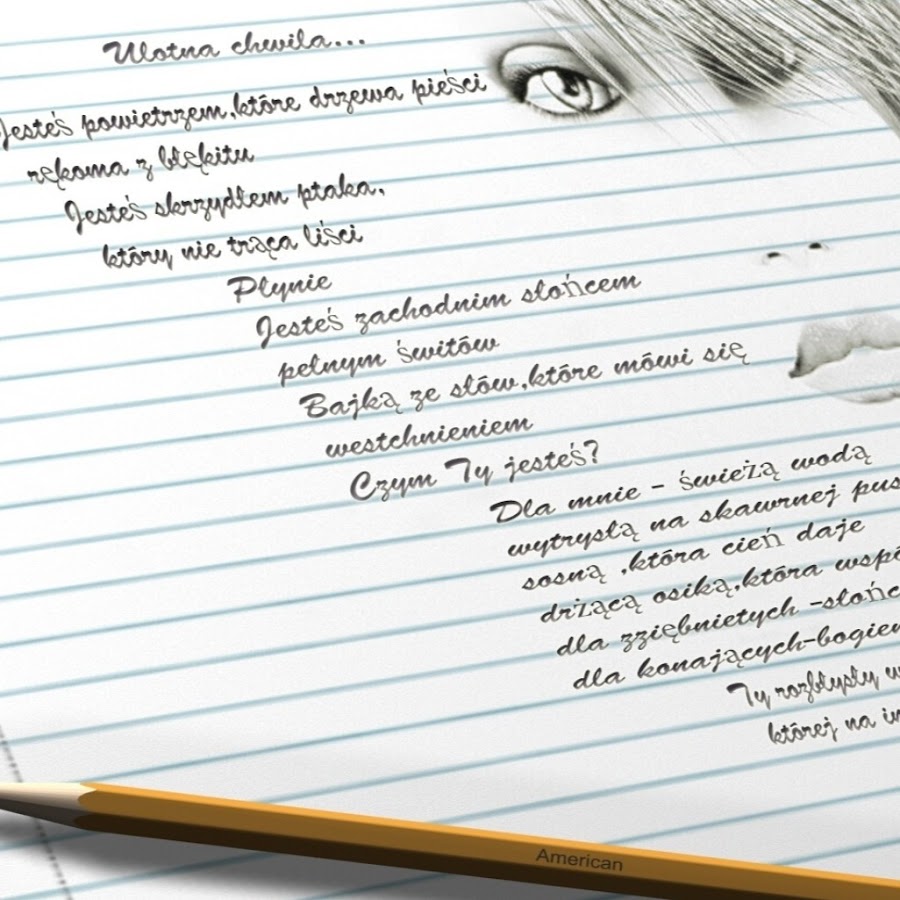 Ulotna chwila...
Jesteś powietrzem,które drzewa pieści
rękoma z błękitu
Jesteś skrzydłem ptaka,
który nie trąca liści
Płynie
Jesteś zachodnim słońcem
pełnym świtów
Bajką ze słów,które mówi się
westchnieniem
Czym Ty jesteś?
Dla mnie - świeżą wodą
wytrysłą na skawrnej pus
sosną ,która cień daje
drżącą osiką,która wspó
dla zziębnietych -słońc
dla konających-bogiem
Ty rozbłysły
której na
American